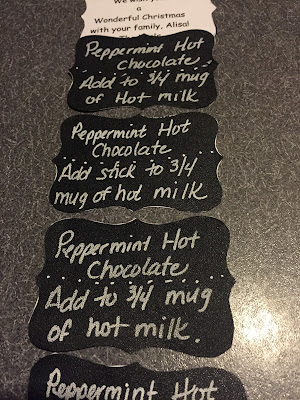 a
Wonderful Christmas
with your family, Alisa!
Peppermint Hot
Chocolate
Add to 3/4 mug
of Hot milk
Peppermint Hot
Chocolate
Add stick to 3/4
mug of hot milk
Peppermint Hot
Chocolate
Add to 3/4 mug
of hot milk.
Peppermint Hot